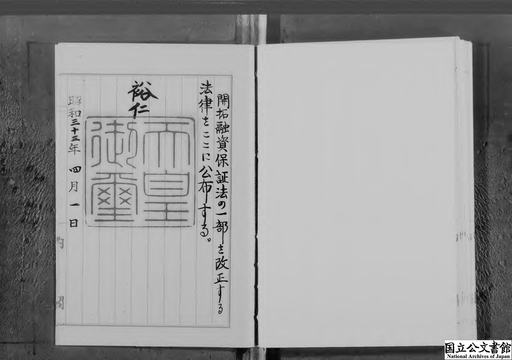 開拓融資保証法の一部を改正する
法律をここに公布する。
裕仁
天皇
御璽
昭和三十三年四月一日
内閣
国立公文書館
National Archives of Japan